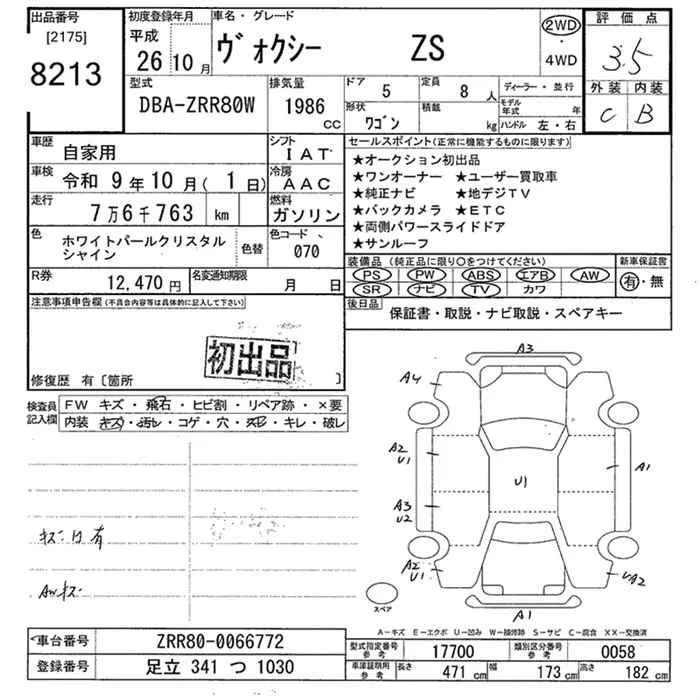 出品番号 初度登録年月 車名・グレード 2WD 評価点
[2175] 平成 ヴォクシー ZS ・ 3.5
8213 26 10月 4WD 外装 内装
型式 排気量 ドア 5 定員 8人 ディーラー・並行 C B
DBA-ZRR80W 1986 cc 形状 ワゴン 積載 kg モデル年式 年
ハンドル 左・右
車歴 自家用 シフト IAT セールスポイント(正常に機能するものに限ります)
車検 令和 9年10月(1日) 冷房 AAC ★オークション初出品
★ワンオーナー ★ユーザー買取車
走行 7万6千763 km 燃料 ガソリン ★純正ナビ ★地デジTV
★バックカメラ ★ETC
色 ホワイトパールクリスタル 色替 色コード 070 ★両側パワースライドドア
シャイン ★サンルーフ
R券 12,470円 名変通知期限 月 日 装備品(純正品に限り○をつけてください) 新車保証書
PS PW ABS エアB AW 有・無
SR ナビ TV カワ
注意事項申告欄(不具合内容等は具体的に記入して下さい) 後日品 保証書・取説・ナビ取説・スペアキー
初出品
修復歴 有〔箇所 〕
検査員記入欄 FW キズ・飛石・ヒビ割・リペア跡・×要
内装 キズ・汚レ・コゲ・穴・ズレ・キレ・破レ
A3
A4
A2 U1 A1
U1
A3 U2
キズ 有
A2 U1 UA2
AWキズ
スペア
A1
A-キズ E-エクボ U-凹み W-補修跡 S-サビ C-腐食 XX-交換済
車台番号 ZRR80-0066772 型式指定番号 参考 17700 類別区分番号 参考 0058
登録番号 足立 341 つ 1030 車庫証明用 参考 長さ 471cm 幅 173cm 高さ 182cm